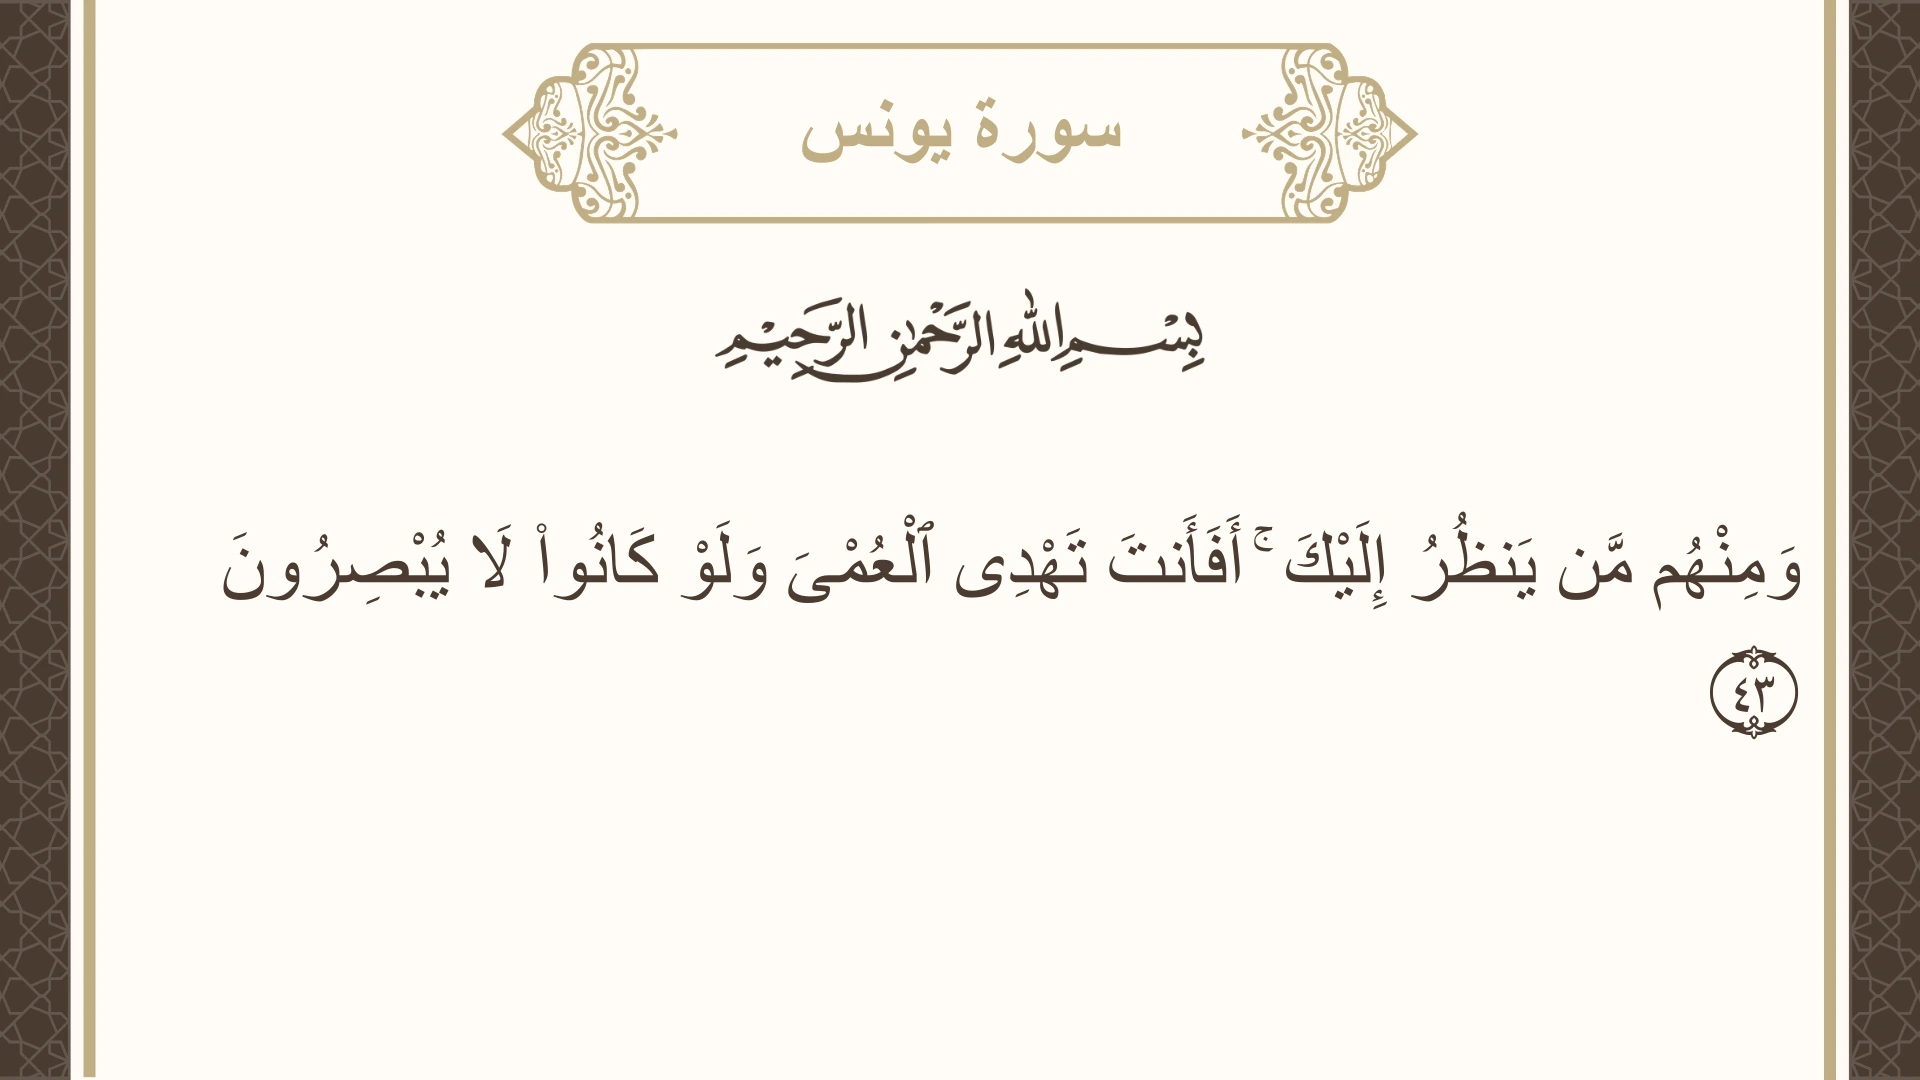 سورة يونس
بِسْمِ اللهِ الرَّحْمٰنِ الرَّحِيْمِ
وَمِنْهُم مَّن يَنظُرُ إِلَيْكَ ۚ أَفَأَنتَ تَهْدِى ٱلْعُمْىَ وَلَوْ كَانُوا۟ لَا يُبْصِرُونَ
٤٣